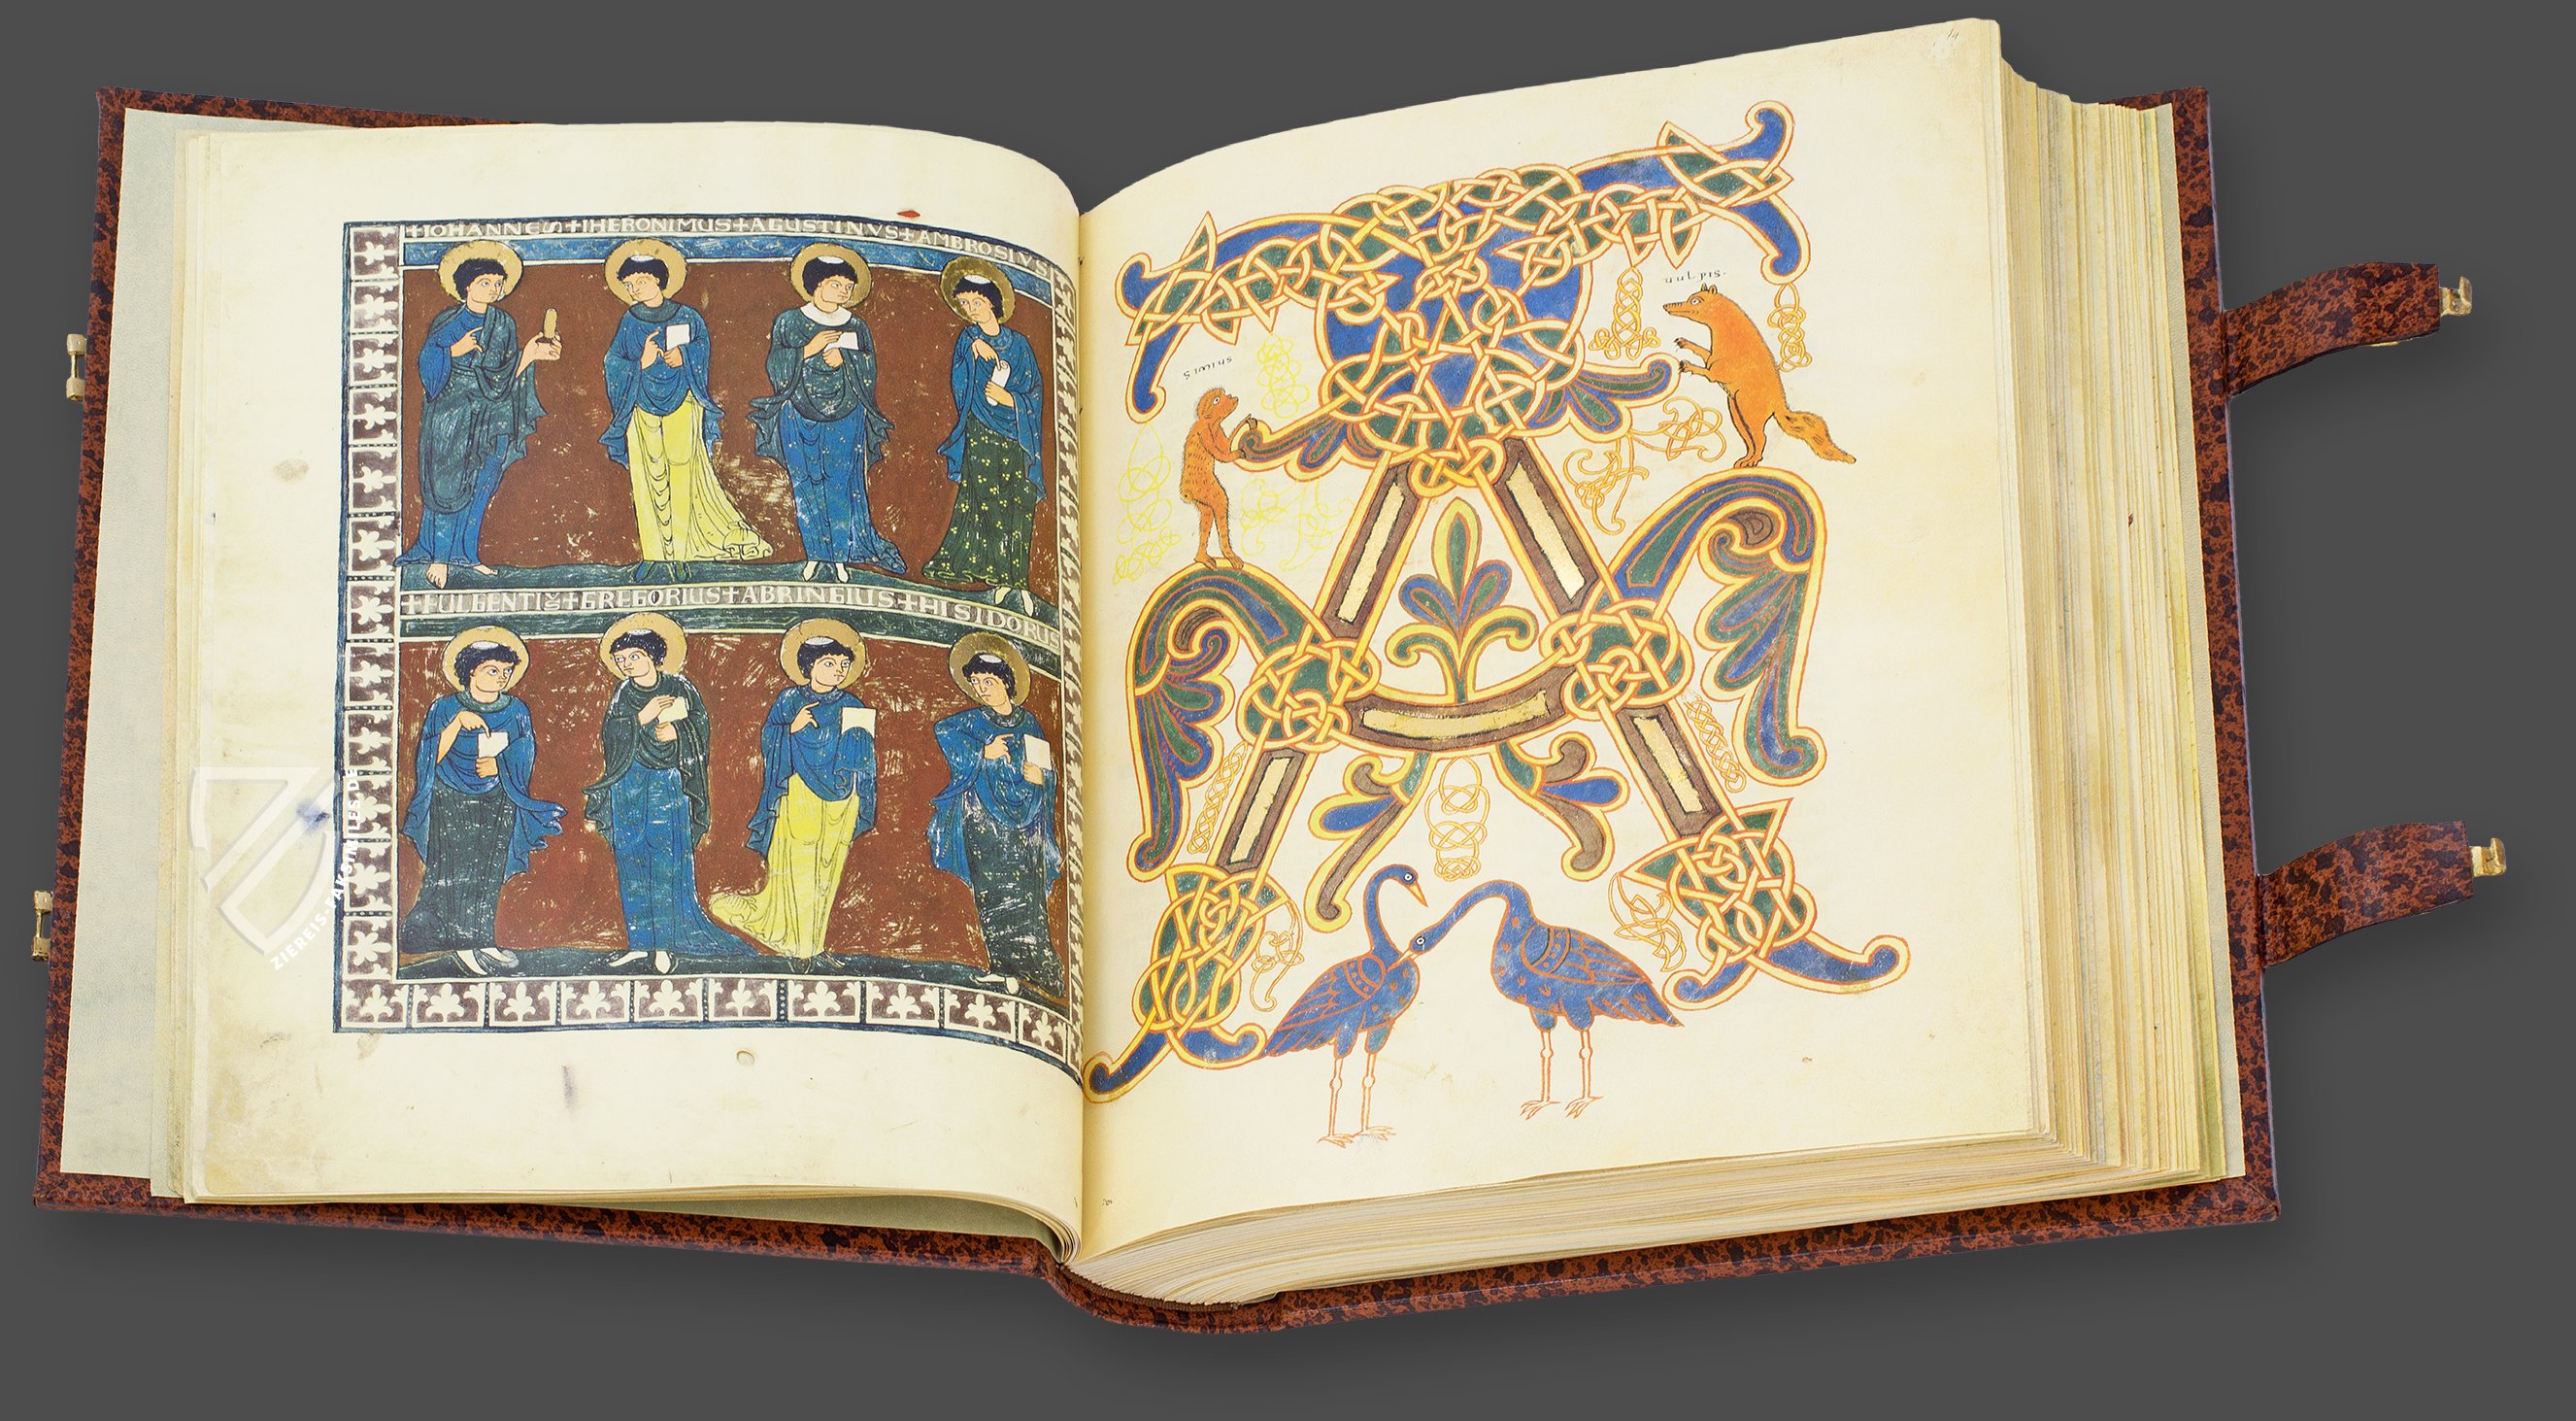 +IOHANNES+IHERONIMUS+AGUSTINVS+AMBROSIVS
+FULGENTIS+GREGORIUS+ABRINGIUS+HISIDORUS
uulpis.
simius
A
ZIEREIS-FAKSIMILES.DE